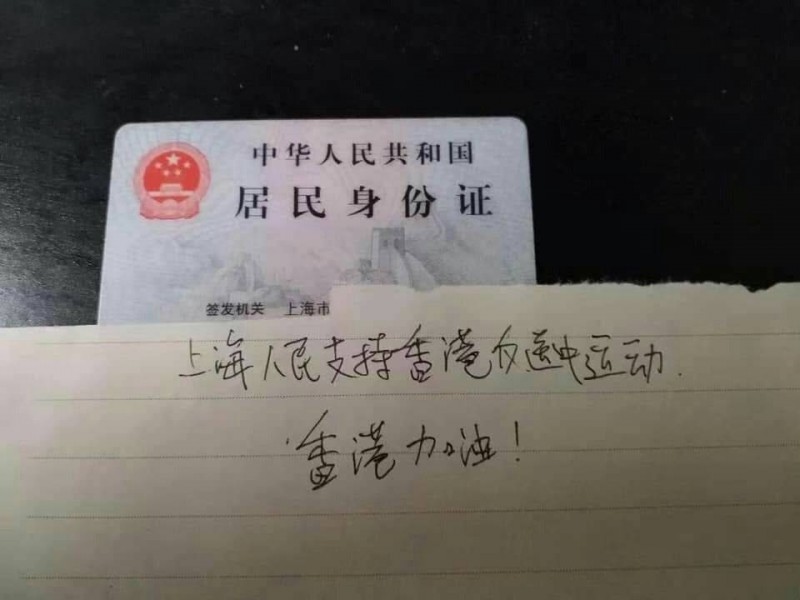 中华人民共和国
居民身份证
签发机关 上海市
上海人民支持香港反送中运动.
香港加油!